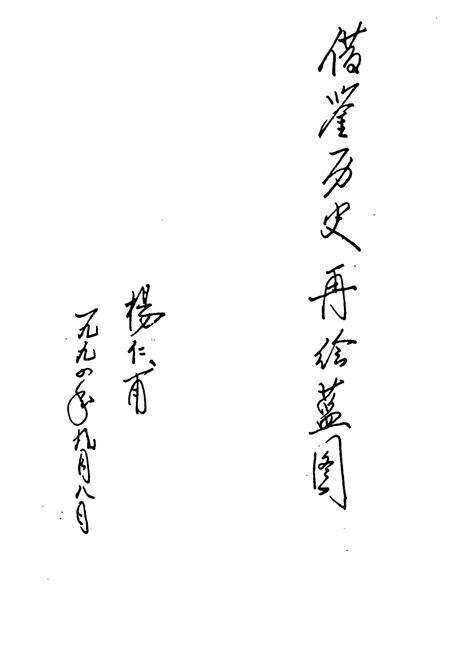 借鉴历史再绘蓝图
楊仁甫
一九九四年九月八日